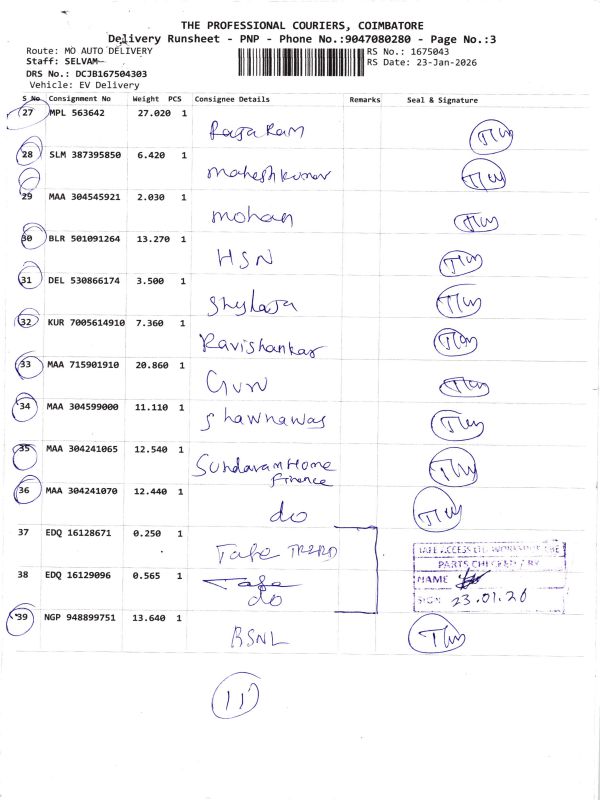 THE PROFESSIONAL COURIERS, COIMBATORE
Delivery Runsheet - PNP - Phone No.:9047080280 - Page No.:3
Route: MO AUTO DELIVERY
RS No.: 1675043
Staff: SELVAM
RS Date: 23-Jan-2026
DRS No.: DCJB167504303
Vehicle: EV Delivery
S No Consignment No Weight PCS Consignee Details Remarks Seal & Signature
27 MPL 563642 27.020 1
RajaRam
28 SLM 387395850 6.420 1
maheshkumar
29 MAA 304545921 2.030 1
mohan
30 BLR 501091264 13.270 1
HSN
31 DEL 530866174 3.500 1
Shylaja
32 KUR 7005614910 7.360 1
Ravishankar
33 MAA 715901910 20.860 1
34 MAA 304599000 11.110 1
Shawnawas
35 MAA 304241065 12.540 1
Sundaram Home
Finance
36 MAA 304241070 12.440 1
do
37 EDQ 16128671 0.250 1
Tafe
PARTS CHECKED BY
38 EDQ 16129096 0.565 1
Tafe
NAME
do
SIGN 23.01.26
39 NGP 948899751 13.640 1
BSNL
11